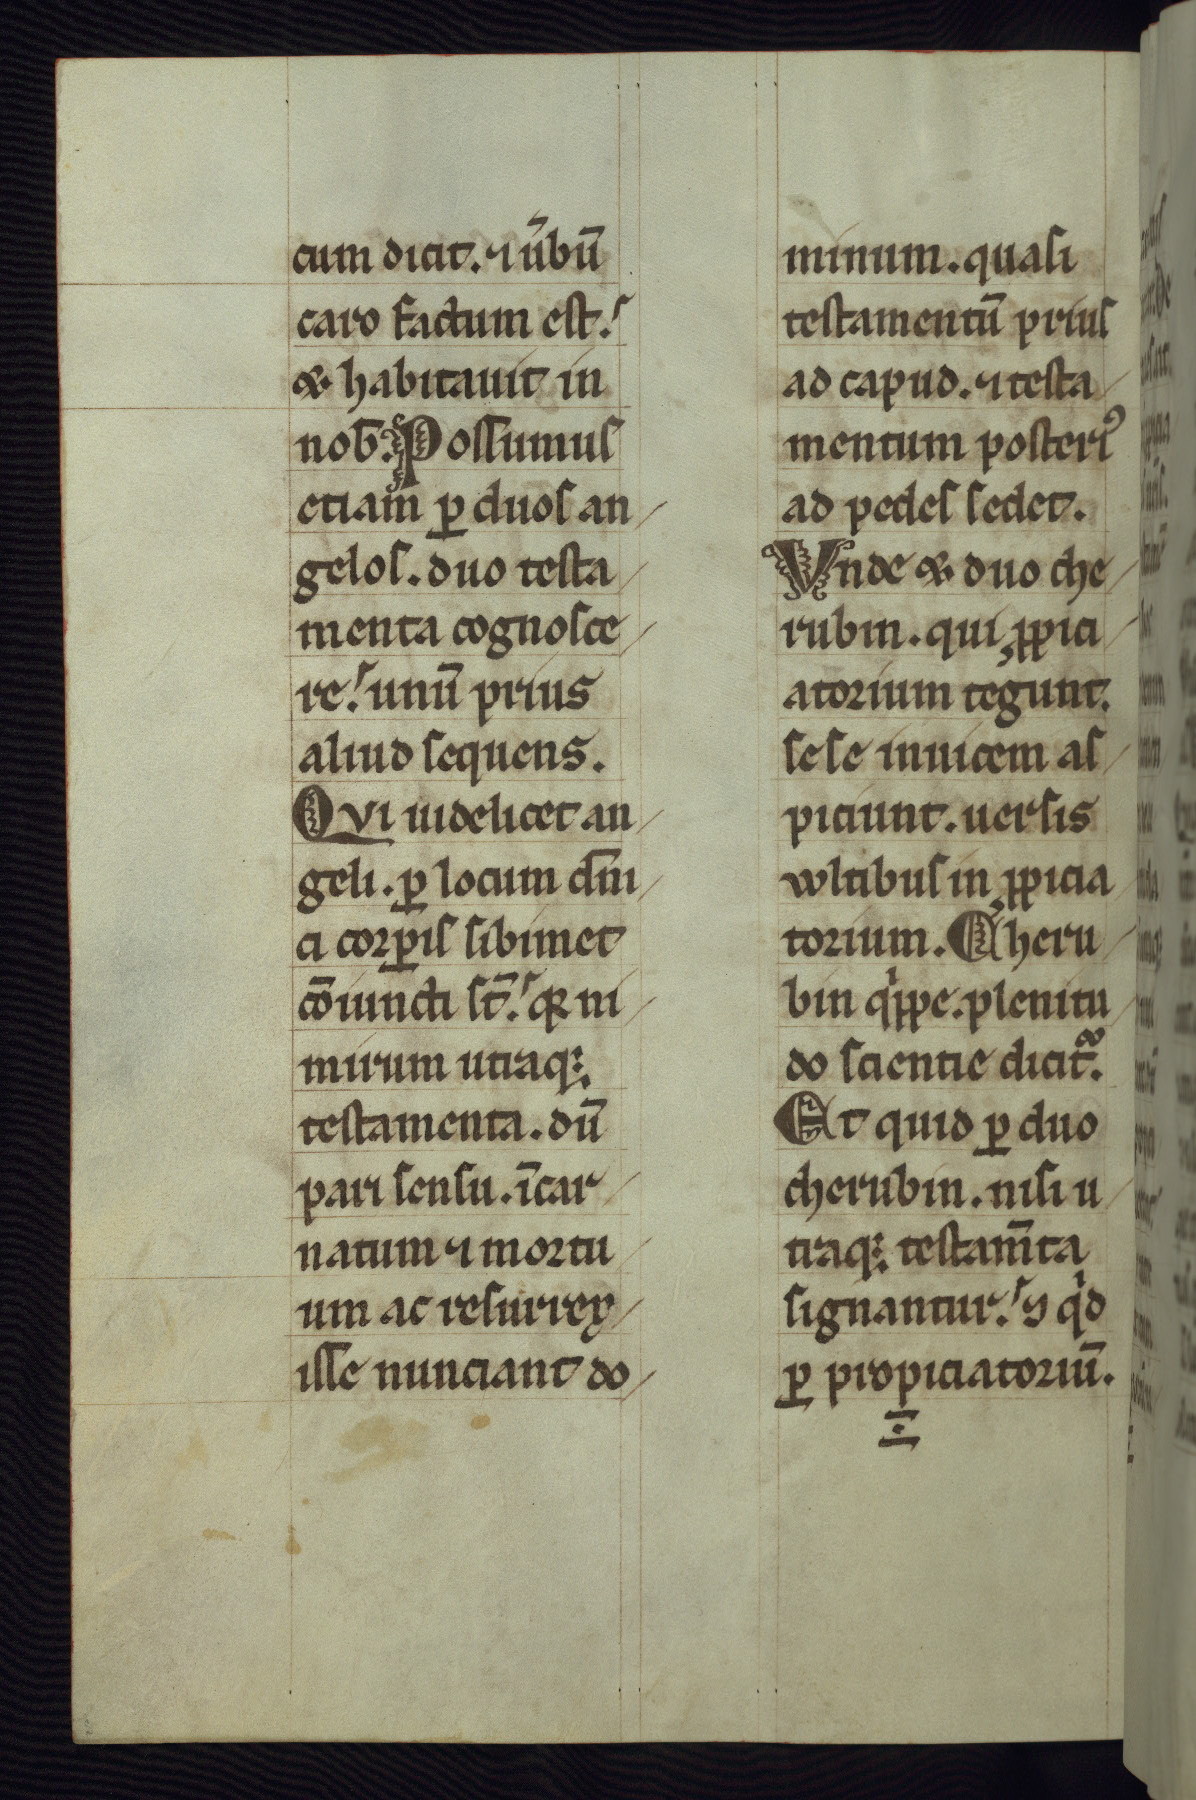 cum dicit. ⁊ ūbū
caro factum est.
& habitauit in
nob̄. Possumus
etiam ꝑ duos an
gelos. duo testa
menta cognosce
re. unū prius
aliud sequens.
Qvi uidelicet an
geli. ꝑ locum dn̄i
ci corꝑis sibimet
cōiuncti st̄. qꝛ ni
mirum utraqꝫ
testamenta. dū
pari sensu. īcar
natum ⁊ mortu
um ac resurrex
isse nunciant do
minum. quasi
testamentū prius
ad capud. ⁊ testa
mentum posteriꝰ
ad pedes sedet.
Vnde & duo che
rubin. qui ꝓpici
atorium tegunt.
sese inuicem as
piciunt. uersis
wltibus in ꝓpicia
torium. Cheru
bin qͥppe. plenitu
do scientie dicit᷑.
Et quid ꝑ duo
cherubin. nisi u
traqꝫ testam̄ta
signantur. ꝯ qͥd
ꝑ propiciatoriū.